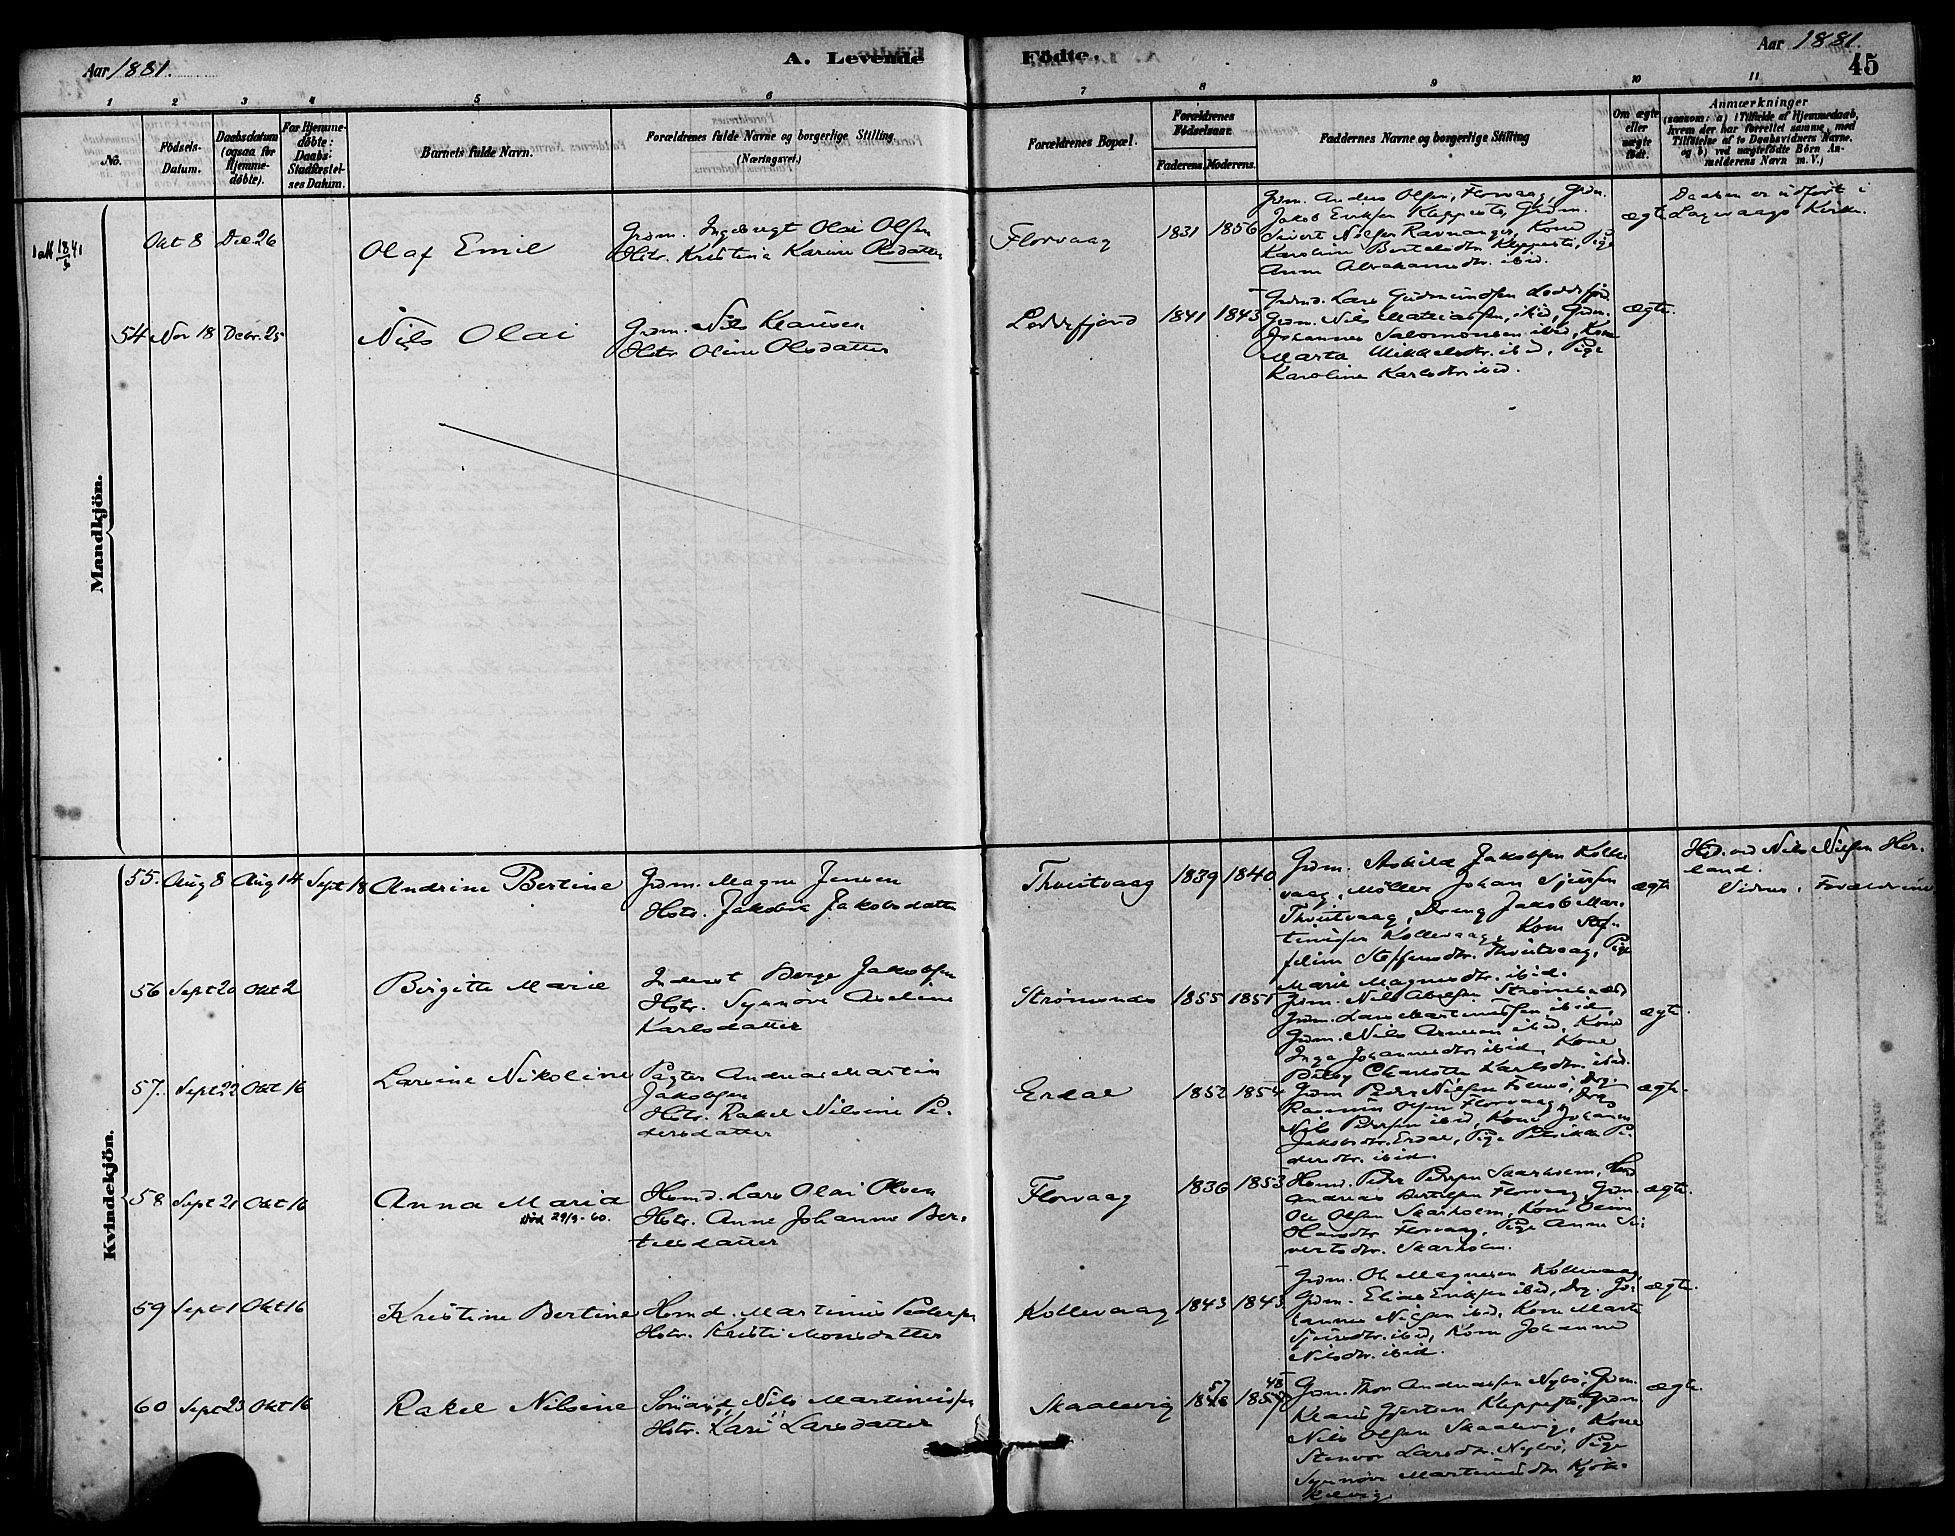 Aar 1881.
A. Levende Födte.
Aar 1881.
45
1 2 3 4 5 6 7 8 9 10 11
No.
Födsels-
Datum.
Daabsdatum
(ogsaa for
Hjemme-
döbte).
For Hjemme-
döbte:
Daabs-
Stadfæstel-
ses Datum.
Barnets fulde Navn.
Forældrenes fulde Navne og borgerlige Stilling.
(Næringsvei.)
Forældrenes Bopæl.
Forældrenes
Födselsaar.
Faderens. Moderens.
Faddernes Navne og borgerlige Stilling
Om ægte
eller
uægte
født.
Anmærkninger
(saasom: a) i Tilfælde af Hjemmedaab,
hvem der har forrettet samme, med
Tilføielse af to Daabsvidners Navne,
og b) ved uægtefødte Börn An-
melderens Navn m. V.)
Mandkjön.
Okt 8 Dec 26
Olaf Emil
Grdm. Ingebrigt Olai Olsen
Hstr. Kristina Karine Olsdatter
Florvaag
1831 1856
Grdm. Anders Olsen, Florvaag, Grdm.
Jakob Eriksen Kleppestø, Grdm.
Sivert Nilsen Ravnanger, Kone
Karoline Bertelsdtr. Kleppestø, Pige
Anna Abrahamsdtr. ibid.
ægte
Daaben er udført i
Laxevaags Kirke.
54 Nov 18 Decbr. 25
Nils Olai
Grdm. Nils Klausen
Hstr. Oline Olsdatter
Loddefjord
1841 1843
Grdmd. Lars Gudmundsen Loddefjord
Grdm. Nils Mathiassen, ibid, Grdm.
Johannes Salomonsen ibid, Kone
Marta Mikkelsdtr. ibid, Pige
Karoline Karlsdtr. ibid.
ægte.
Kvindekjön.
55. Aug 8 Aug 14 Sept 18
Andrine Bertine
Grdm. Magne Jensen
Hstr. Jakobia Jakobsdatter
Thveitvaag
1839 1840
Grdm. Askild Jakobsen Kolle-
vaag, Møller Johan Sjursen
Thveitvaag, Dreng Jakob Mar-
tinusen Kollevaag, Kone Stef-
feline Steffensdtr. Thveitvaag, Pige
Marie Magnesdtr. ibid.
ægte
Hjd. ved Nils Nilsen Her-
land.
Vidner: Forældrene
56 Sept 20 Okt 2
Birgitte Marie
Inderst Børge Jakobsen
Hstr. Synnøve Axeline
Karlsdatter
Strømsnes
1855 1851
Grdm. Nils Abelsen Strømsnes
Grdm. Lars Martinussen ibid,
Grdm. Nils Arnesen ibid, Kone
Inga Johannesdtr. ibid, Kone
Charlotte Karlsdtr. ibid.
ægte.
57. Sept 22 Okt 16
Lavine Nikoline
Pagter Andreas Martin
Jakobsen
Hstr. Rakel Nilsine Pe-
dersdatter
Erdal
1852 1854
Grdm Peder Nilsen Follesø, Drg
Rasmus Olsen Florvaag, Drg
Nils Pedersen ibid, Kone Johanna
Jakobsdtr. Erdal, Pige Petrikke Pe-
dersdtr. ibid.
ægte.
58 Sept 21 Okt 16
Anna Maria
død 29/9-60.
Hsmd. Lars Olai Olsen
Hstr. Anne Johanne Ber-
telsdatter
Florvaag
1836 1853
Hsmd. Peder Pedersen Skarholm, Hsmd
Andreas Bertelsen Florvaag, Grdm
Ole Olsen Skarholm, Kone
Hansdtr. Florvaag, Pige Anne Si-
vertsdtr. Skarholm.
ægte.
59 Sept 1 Okt 16
Kristine Bertine
Hsmd. Martinus Pedersen
Hstr. Kristi Monsdatter
Kollevaag
1843 1843
Grdm. Ole Magnesen Kollevaag,
Grdm. Elias Eriksen ibid, Drg. Jo-
hannes Nilsen ibid, Kone Marta
Sjursdtr. ibid, Kone Johanna
Nilsdtr. ibid.
ægte.
60 Sept 23 Okt 16
Rakel Nilsine
Nils Martinussen
Hstr. Kari Larsdatter
Skaalevig
Grdm. Thor Andreassen Nybø, Grdm.
Klaus Gjertsen Kleppestø, Grdm
Nils Olsen Skaalevig, Kone
Stenvor Larsdtr. Nybø, Pige
Synnøve Martinusdtr. Kjøk-
kelvig.
ægte